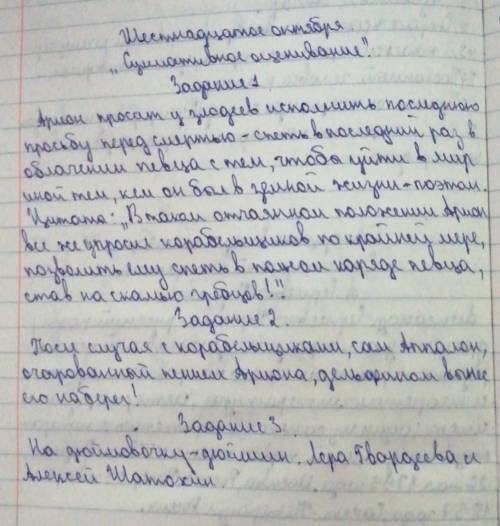 Шестнадцатое октября
„Суммативное оценивание".
Задание 1
Арион просит у злодеев исполнить последнюю
просьбу перед смертью - спеть в последний раз в
облачении певца с тем, чтобы уйти в мир
иной тем, кем он был в земной жизни - поэтом.
Цитата: „В таком отчаянном положении Арион
все же упросил корабельщиков по крайней мере,
позволить ему спеть в полном наряде певца,
став на скамью гребцов!"
Задание 2.
После случая с корабельщиками, сам Апполон,
очарованный пением Ариона, дельфином вынес
его на берег!
Задание 3.
На дюймовочку - дюймин. Лера Гвардеева и
Алексей Шатохин